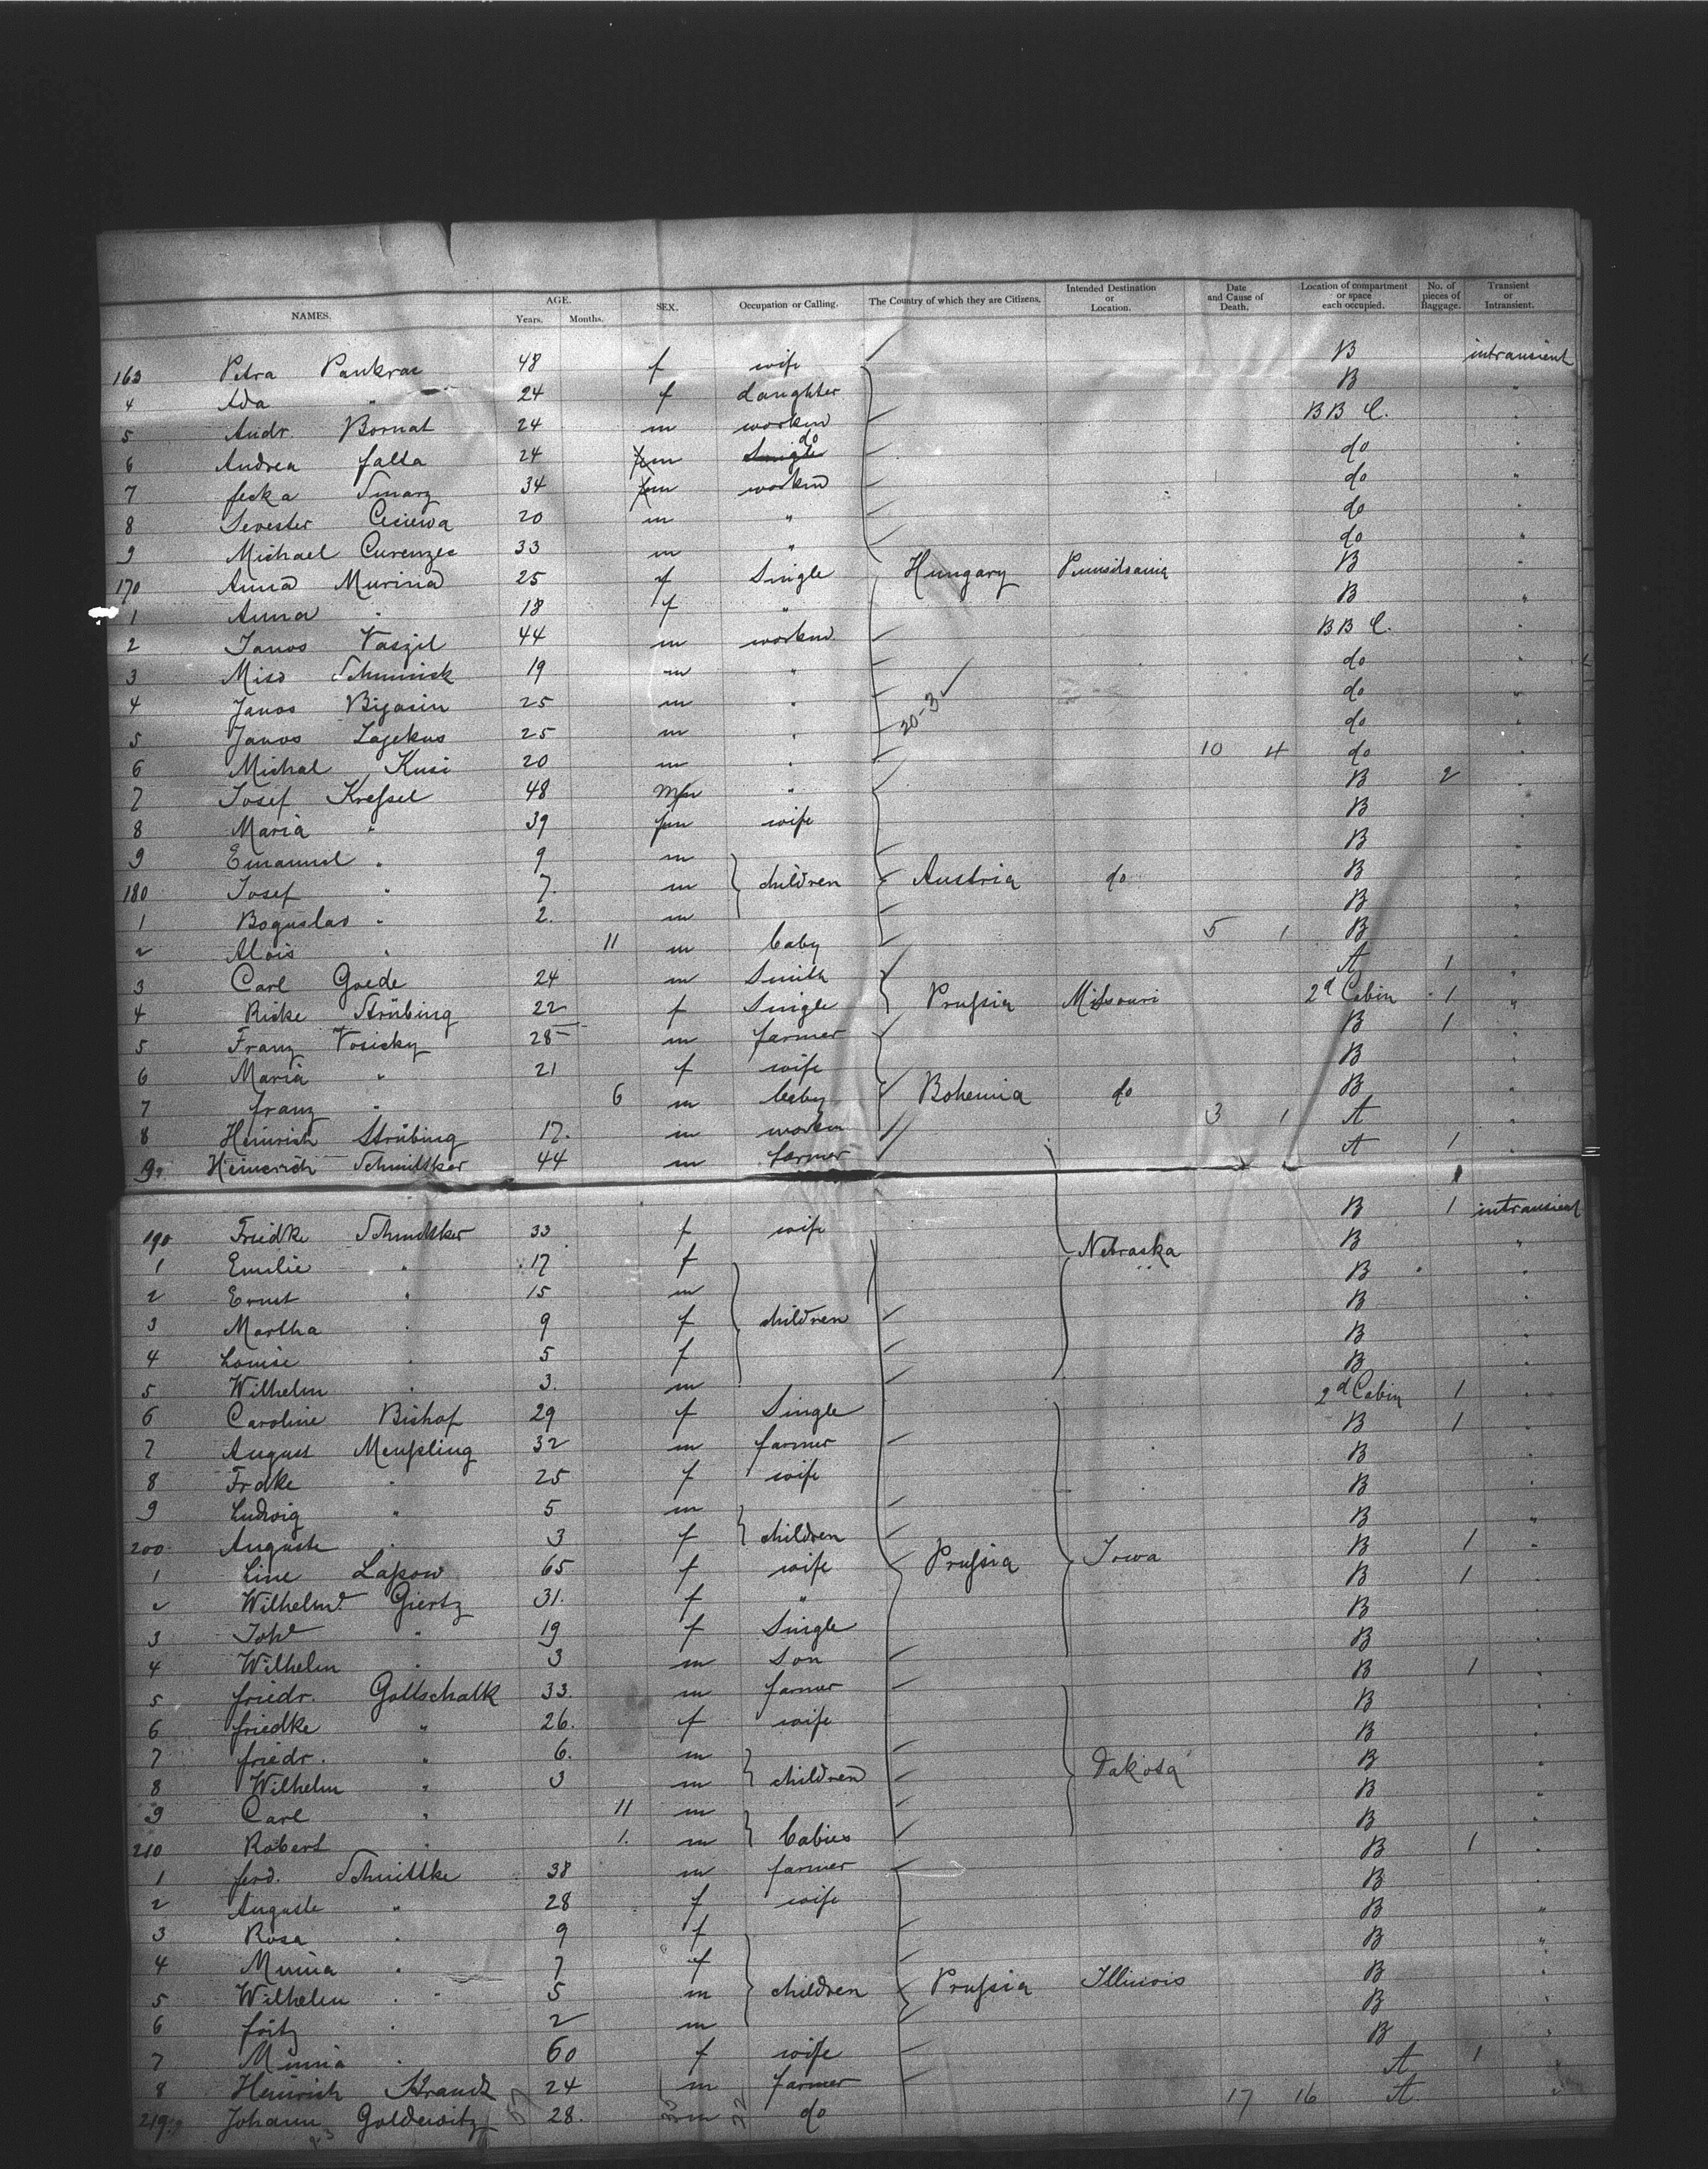 NAMES. AGE. Years. Months. SEX. Occupation or Calling. The Country of which they are Citizens. Intended Destination or Location. Date and Cause of Death. Location of compartment or space each occupied. No. of pieces of Baggage. Transient or Intransient.
163 Petra Pankrac 48 f wife B intransient
4 Ada " 24 f daughter B "
5 Andr. Bornat 24 m workm BB C. "
6 Andrea falla 24 m do do "
7 fecka Smarz 34 m workm do "
8 Sevester Cesiewa 20 m " do "
9 Michael Curenzec 33 m " do "
170 Anna Murina 25 f Single Hungary Pennsilvania B
1 Anna " 18 f " B "
2 Janos Vaszil 44 m workm BB C. "
3 Miso Schminick 19 m " do "
4 Janos Bijasin 25 m " 20-3 do "
5 Janos Lazekus 25 m " do
6 Michal Kusi 20 m " 10 4 do "
7 Josef Kreſsel 48 m " B 2 "
8 Maria " 39 f wife B
9 Emanuel " 9 m B "
180 Josef " 7. m children Austria do B
1 Boguslav " 2. m B "
2 Alois " 11 m baby 5 1 B "
3 Carl Goede 24 m Smith A 1 "
4 Rieke Strübing 22 f Single Pruſsia Missouri 2d Cabin 1 "
5 Franz Vosicky 28 m farmer B 1 "
6 Maria " 21 f wife B "
7 franz " 6 m baby Bohemia do B "
8 Heinrich Strübing 17. m workm 3 1 A "
9 Heinerich Schmitsker 44 m farmer A 1 "
190 Friedke Schmitsker 33 f wife B 1 intransient
1 Emilie " 17 f Nebraska B "
2 Ernst " 15 m B "
3 Martha " 9 f children B "
4 Louise " 5 f B "
5 Wilhelm " 3. m B "
6 Caroline Bishof 29 f Single 2d Cabin 1 "
7 August Meuſsling 32 m farmer B 1 "
8 Frdke " 25 f wife B "
9 Ludwig " 5 m B "
200 Auguste " 3 f children B "
1 Line Laſsow 65 f wife Pruſsia Iowa B 1 "
2 Wilhelme Giertz 31. f " B 1
3 Johe " 19 f Single B
4 Wilhelm " 3 m Son B "
5 friedr. Gottschalk 33. m farmer B 1 "
6 friedke " 26. f wife B "
7 friedr. " 6. m B
8 Wilhelm " 3 m children Dakota B "
9 Carl " 11 m B
210 Robert " 1. m babies B "
1 ferd. Schmittke 38 m farmer B 1 "
2 Auguste " 28 f wife B
3 Rosa " 9 f B "
4 Minna " 7 f B "
5 Wilhelm " 5 m children Pruſsia Illinois B "
6 fritz " 2 m B "
7 Minna " 60 f wife B "
8 Heinrich Strandt 24 m farmer A 1 "
219 Johann Goldewitz 28. m do 17 16 A "